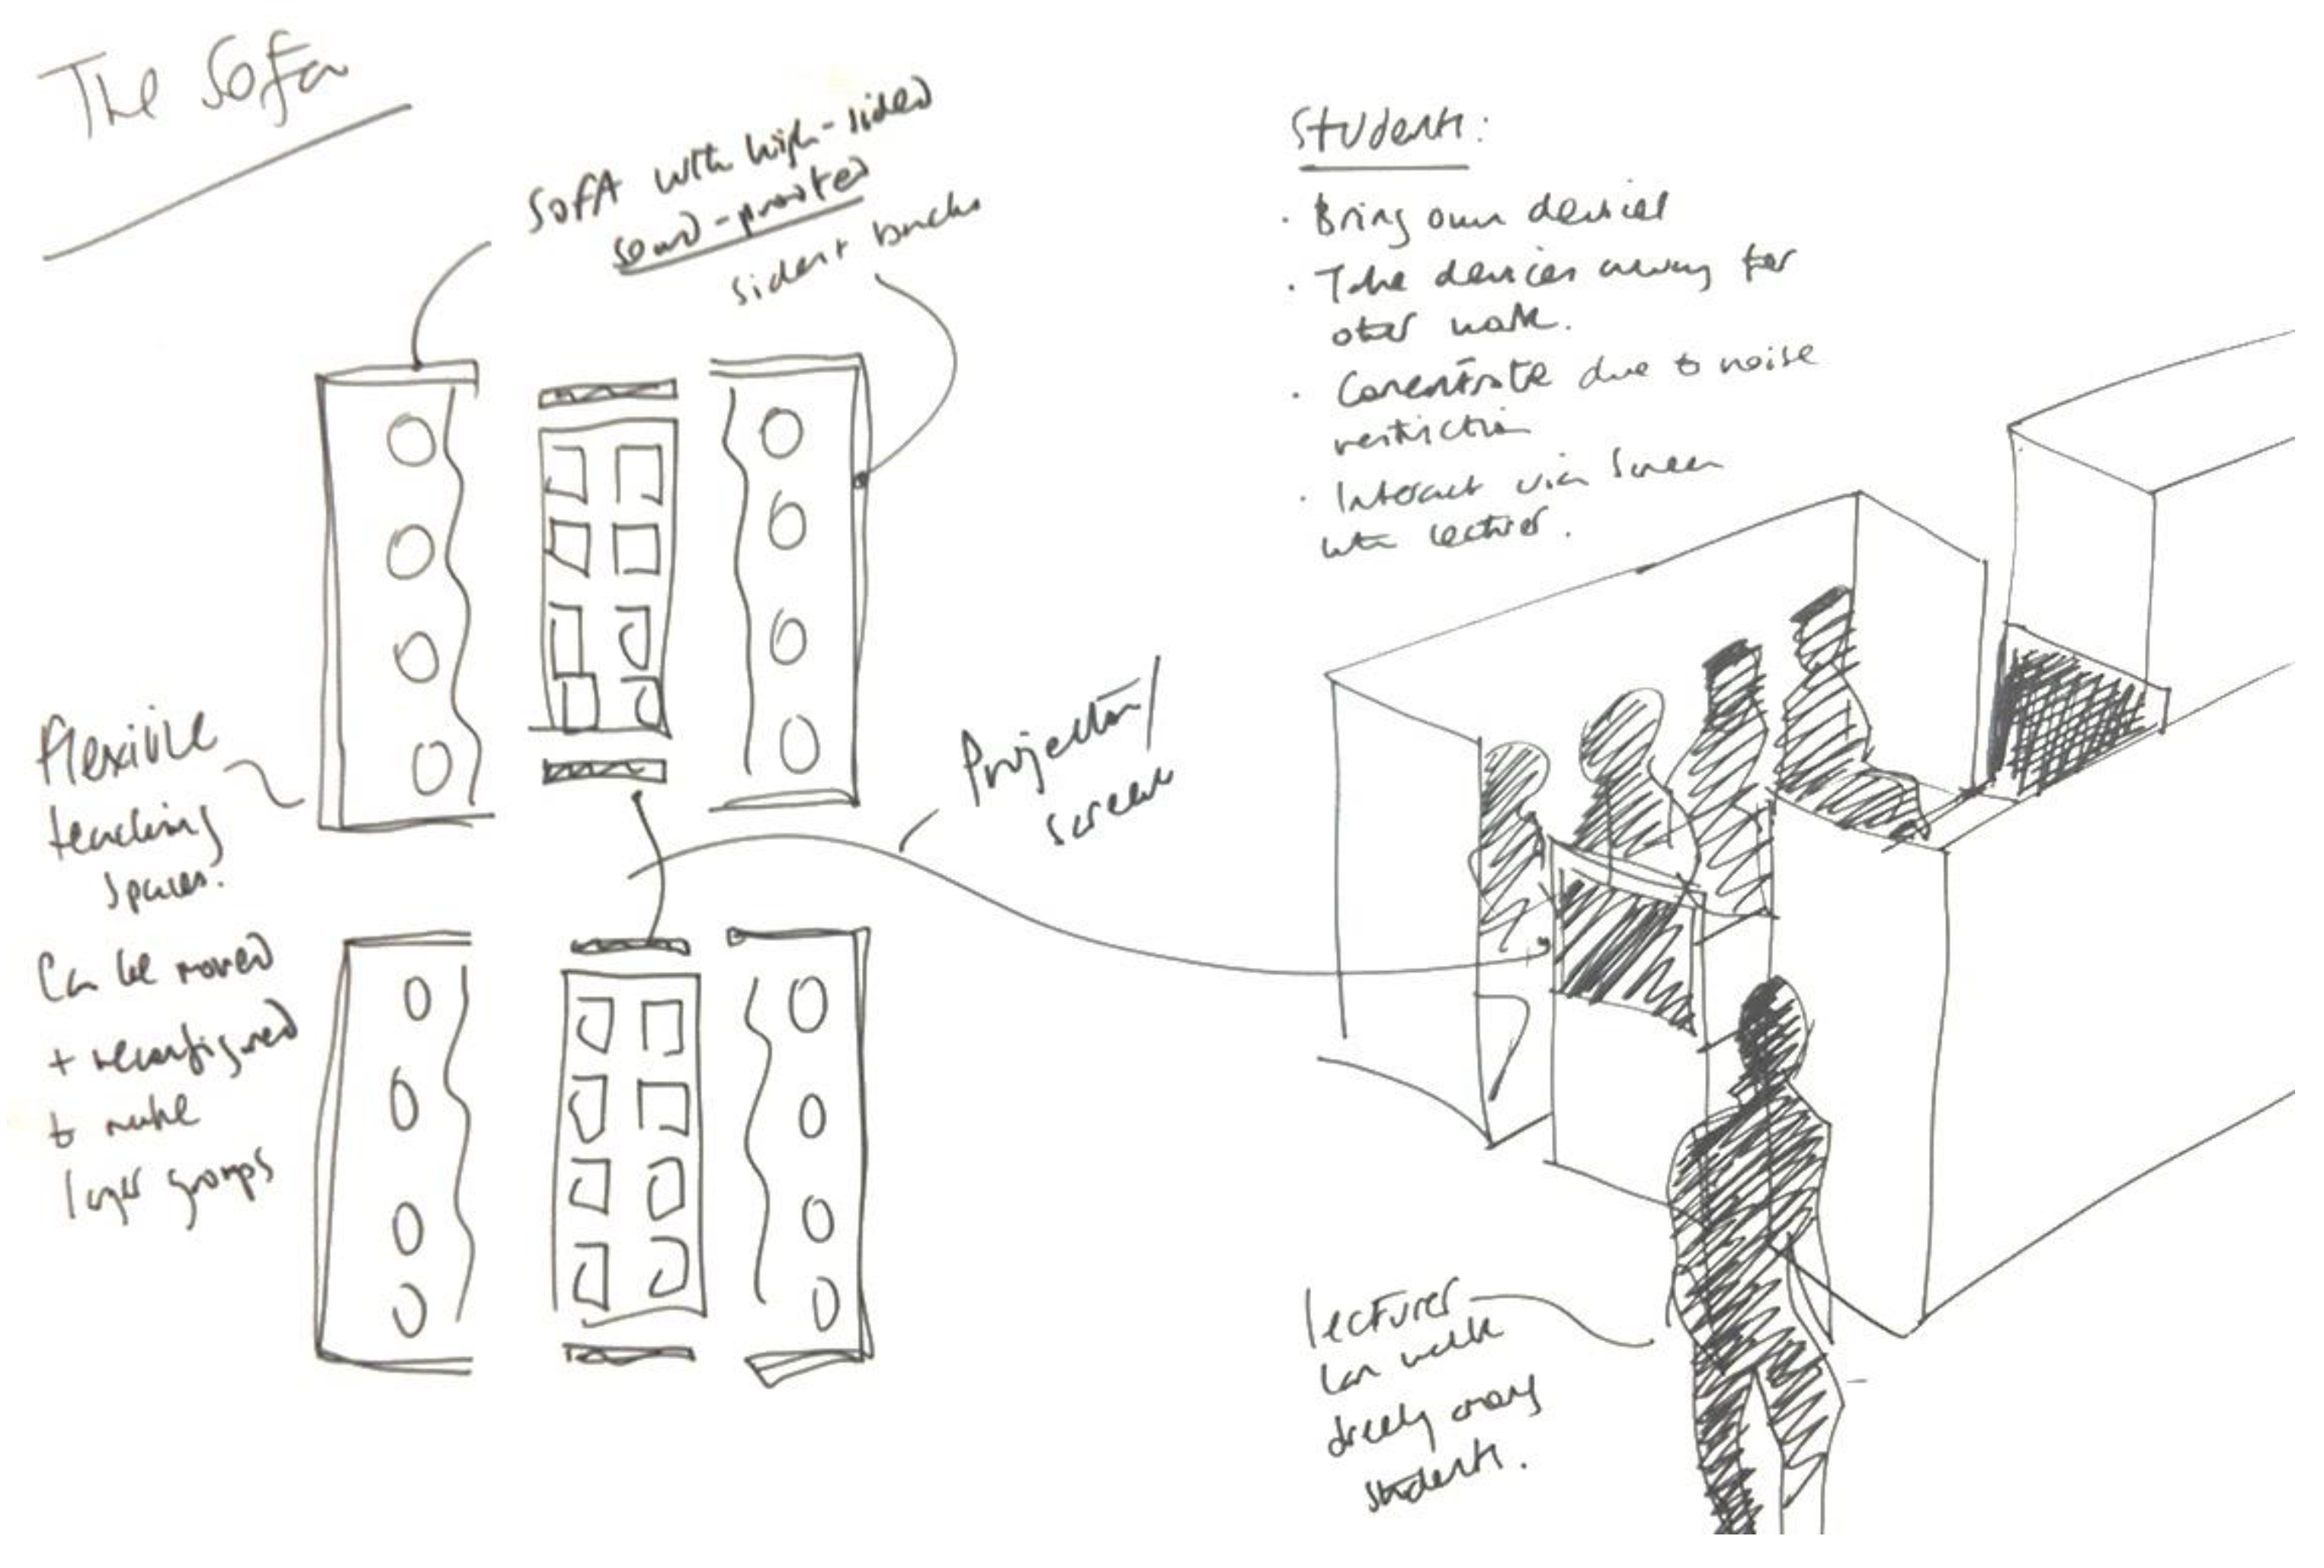 The Sofa
SOFA with high-sided
sound-proofed
sides + backs
Students:
· Bring own devices
· Take devices away for
other work.
· Concentrate due to noise
restriction
· Interact via screen
with lecturer.
Projection/
screen
flexible
teaching
spaces.
Can be moved
+ reconfigured
to make
larger groups
lecturer
can walk
freely among
students.